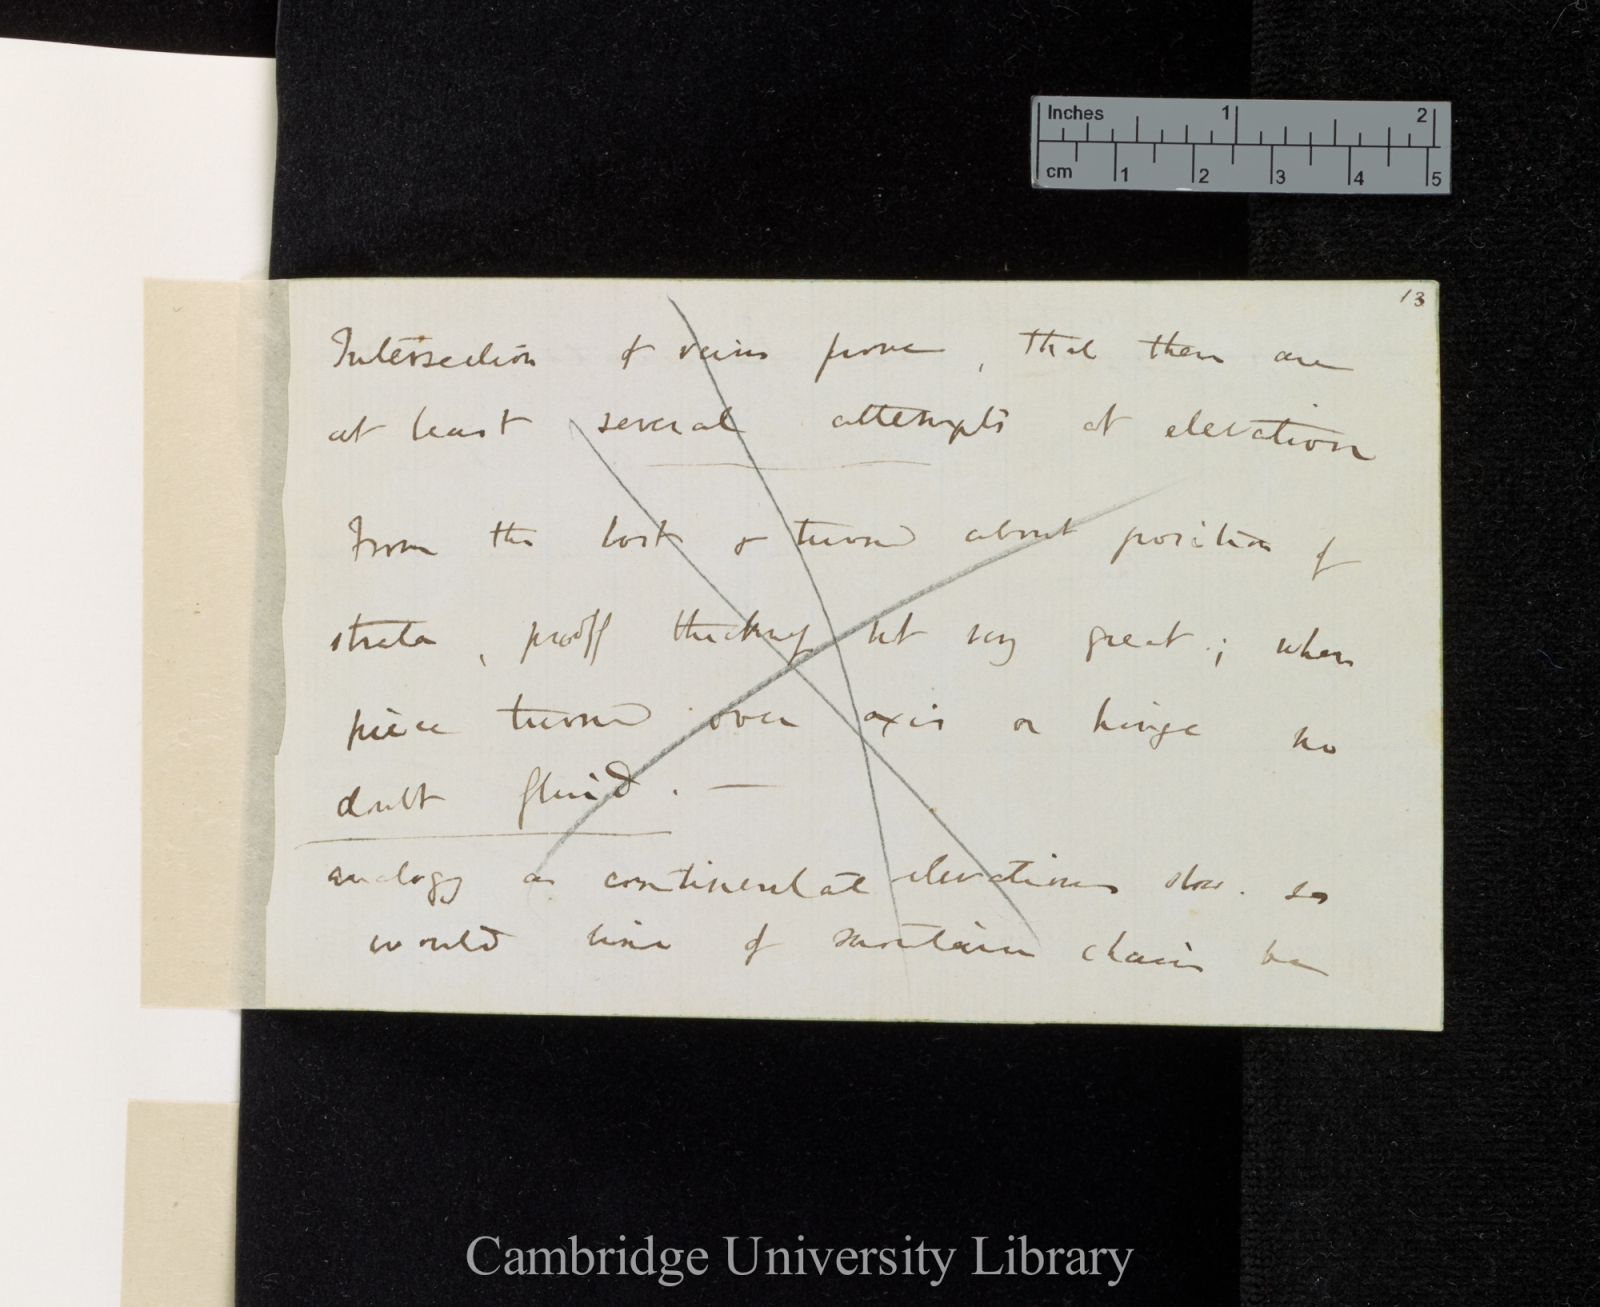 Inches 1 2
cm 1 2 3 4 5
13
Intersection of veins prove, that there are
at least several attempts at elevation
From the lost & turned about position of
strata, proofs thickness not very great; when
piece turned over axis or hinge no
doubt fluid. —
analogy as continental elevations slow. so
would line of mountain chain be
Cambridge University Library